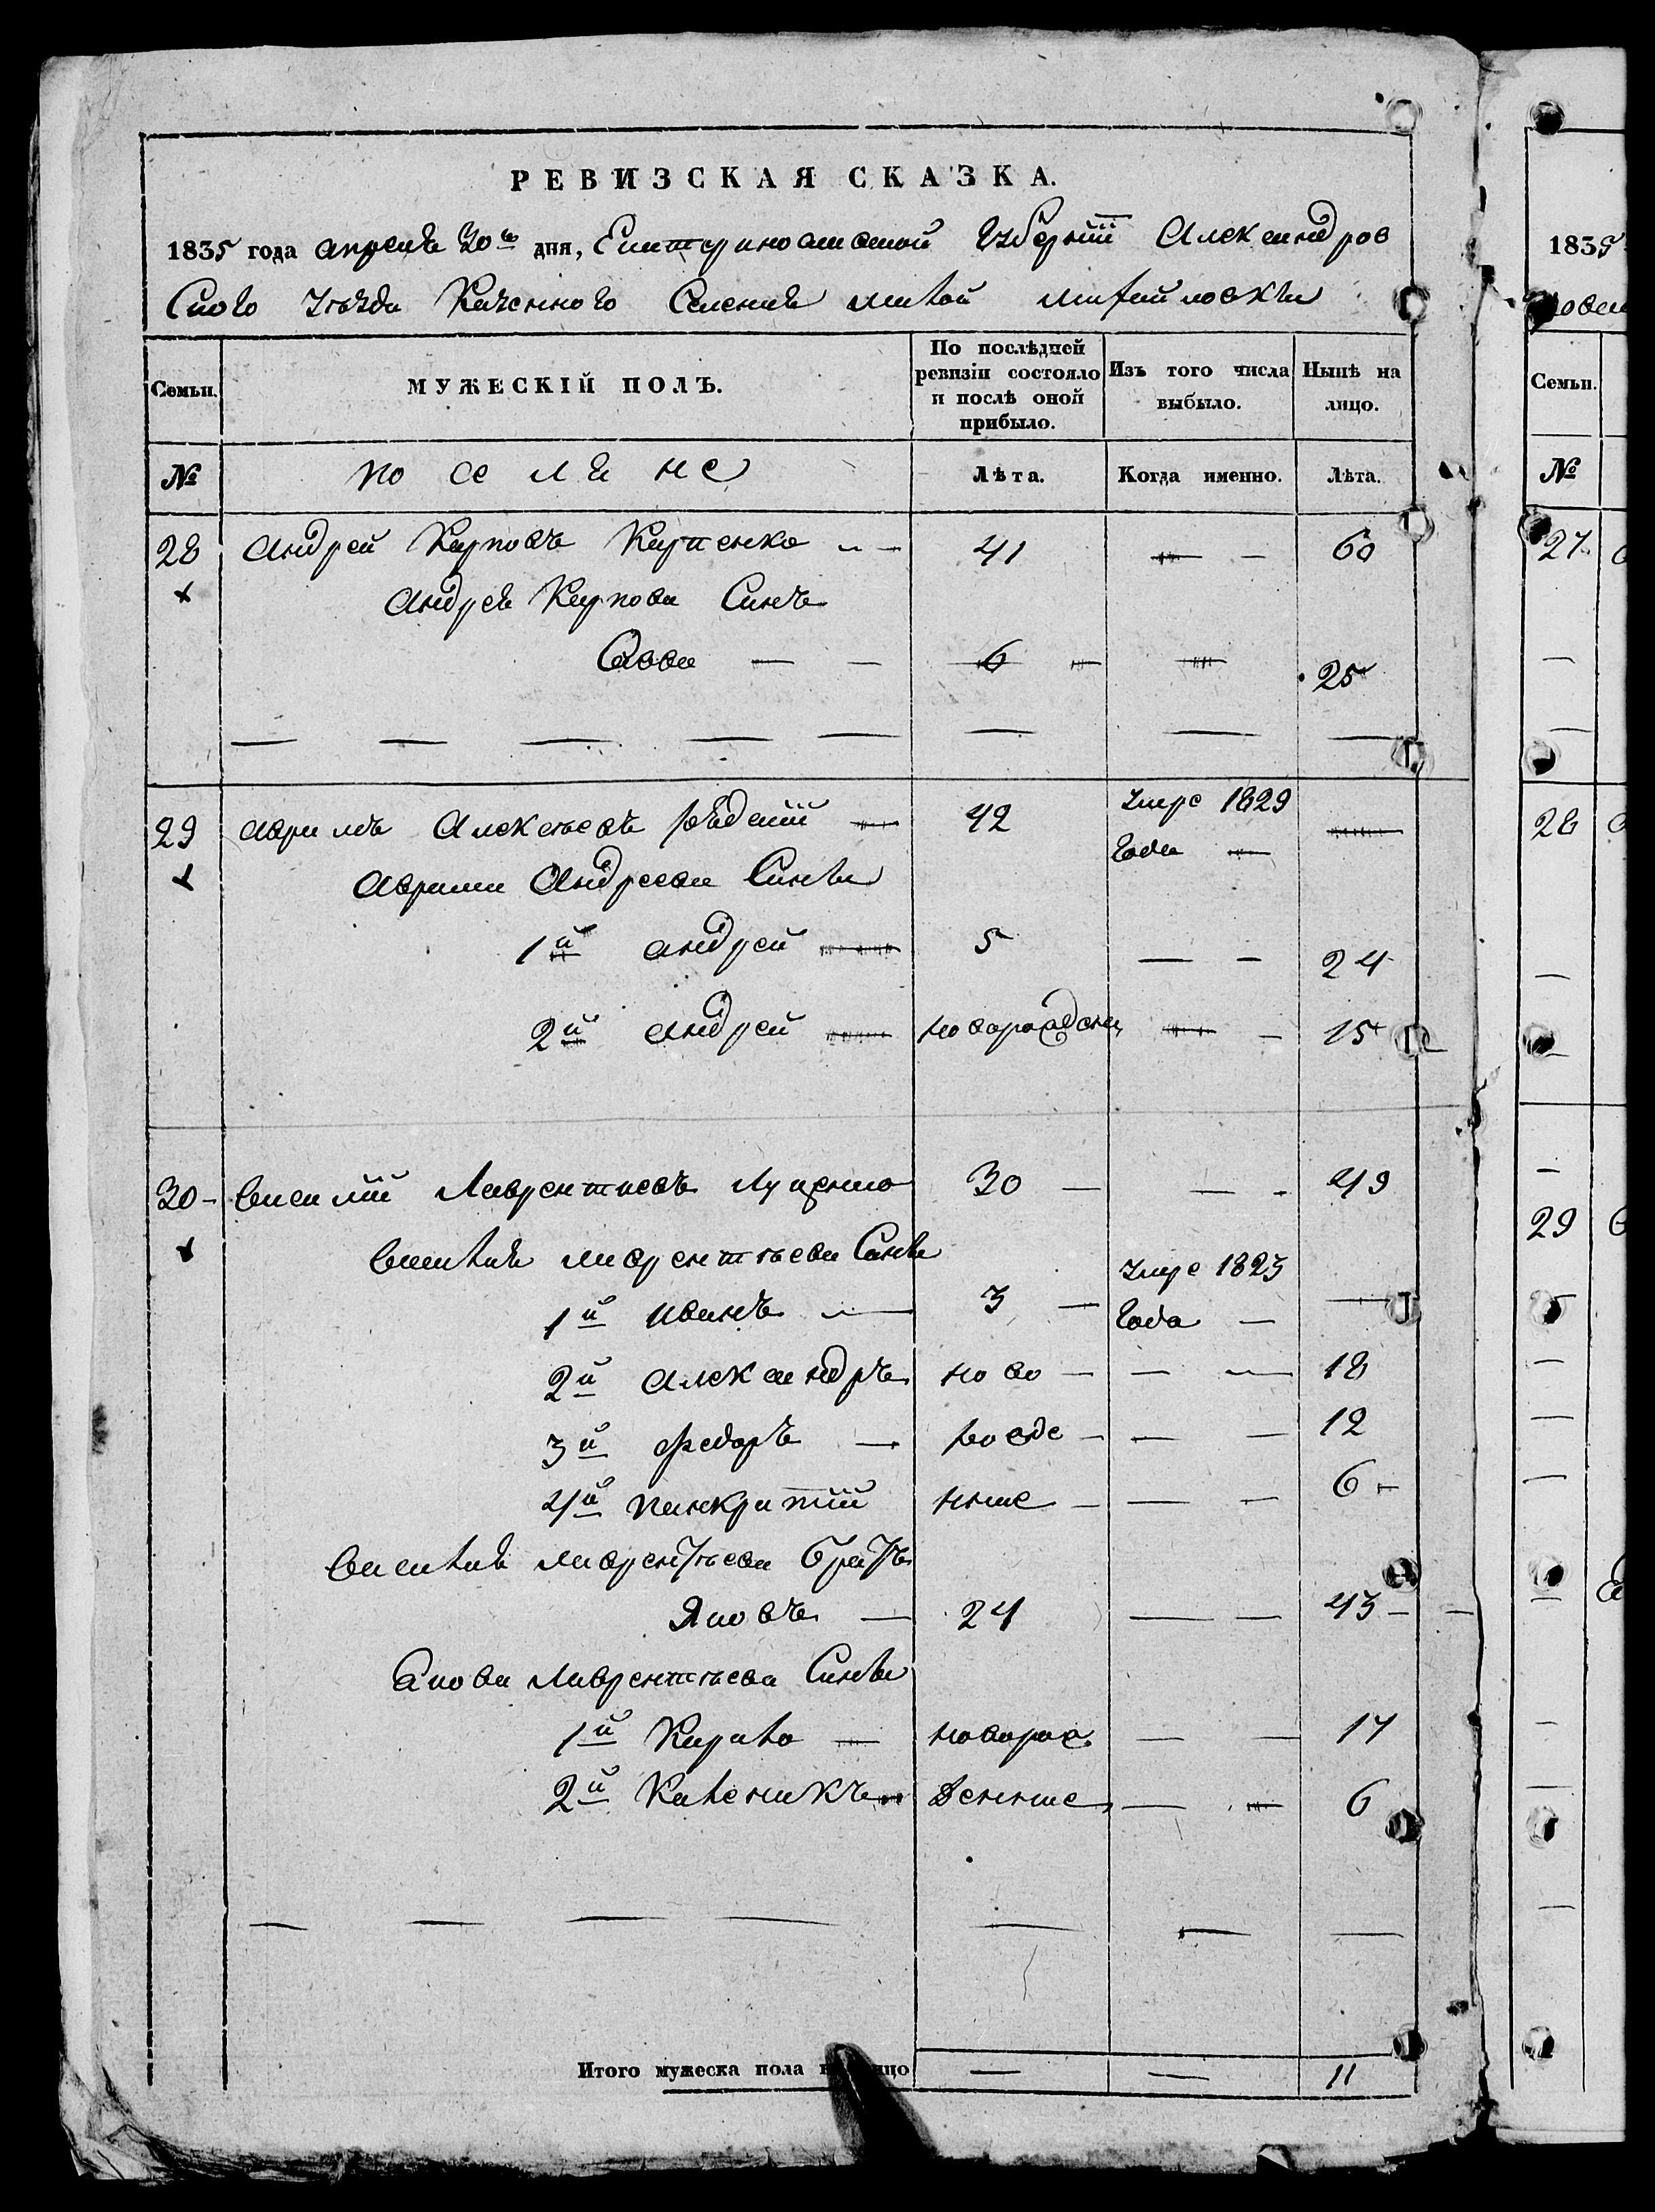 РЕВИЗСКАЯ СКАЗКА.
1835 года апреля 30го дня, Екатеринославской Губернїи Александров
Скаго Уѣзда Казенного Селенія малой михайловки
Семьи.
МУЖЕСКІЙ ПОЛЪ.
По послѣдней ревизіи состояло и послѣ оной прибыло.
Изъ того числа выбыло.
Нынѣ на лицо.
№
поселяне
Лѣта.
Когда именно.
Лѣта.
28 Андрей Карповъ Карпенко — 41 — — 60
Андрея Карпова Синъ
Савва — — 6 — — 25
29 Аврамъ Алексѣевъ рѣдкїй — 42 Умре 1829 года — —
Аврама Андреева Сини
1й Андрей — 5 — — 24
2й Андрей — новорожденъ — — 15
30 Василїй Лаврентиевъ Луценко 30 — — — 49
Василия лаврентѣева Сини
1й Иванъ — 3 — Умре 1823 года — —
2й Александръ ново — — — 18
3й Федоръ — рожде — — — 12
4й Панкратїй нные — — — 6
Василия лаврентѣева братъ
Яковъ — 24 — — 43
Якова лаврентѣева Сини
1й Кирило — новорож — — 17
2й Каленикъ — денные — — 6
Итого мужеска пола на лицо — — 11
1835
Семьи.
№
27
28
29